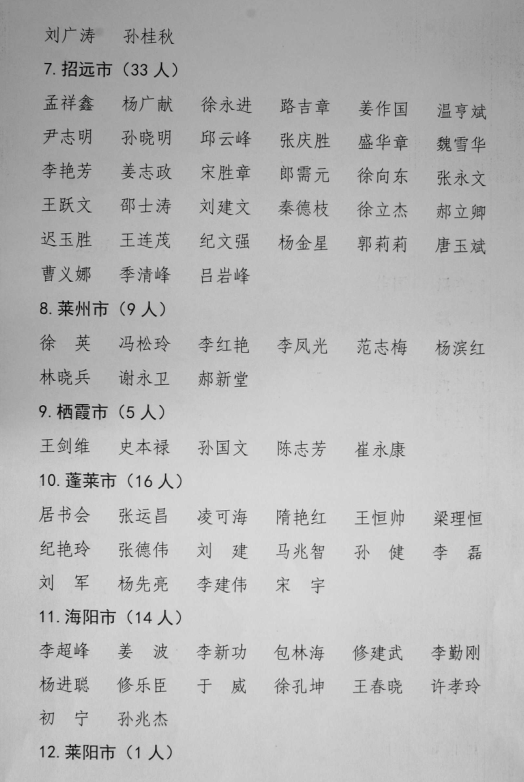 刘广涛 孙桂秋
7.招远市(33人)
孟祥鑫 杨广献 徐永进 路吉章 姜作国 温亨斌
尹志明 孙晓明 邱云峰 张庆胜 盛华章 魏雪华
李艳芳 姜志政 宋胜章 郎需元 徐向东 张永文
王跃文 邵士涛 刘建文 秦德枝 徐立杰 郝立卿
迟玉胜 王连茂 纪文强 杨金星 郭莉莉 唐玉斌
曹义娜 季清峰 吕岩峰
8.莱州市(9人)
徐 英 冯松玲 李红艳 李凤光 范志梅 杨滨红
林晓兵 谢永卫 郝新堂
9.栖霞市(5人)
王剑维 史本禄 孙国文 陈志芳 崔永康
10.蓬莱市(16人)
居书会 张运昌 凌可海 隋艳红 王恒帅 梁理恒
纪艳玲 张德伟 刘 建 马兆智 孙 健 李 磊
刘 军 杨先亮 李建伟 宋 宇
11.海阳市(14人)
李超峰 姜 波 李新功 包林海 修建武 李勤刚
杨进聪 修乐臣 于 威 徐孔坤 王春晓 许孝玲
初 宁 孙兆杰
12.莱阳市(1人)